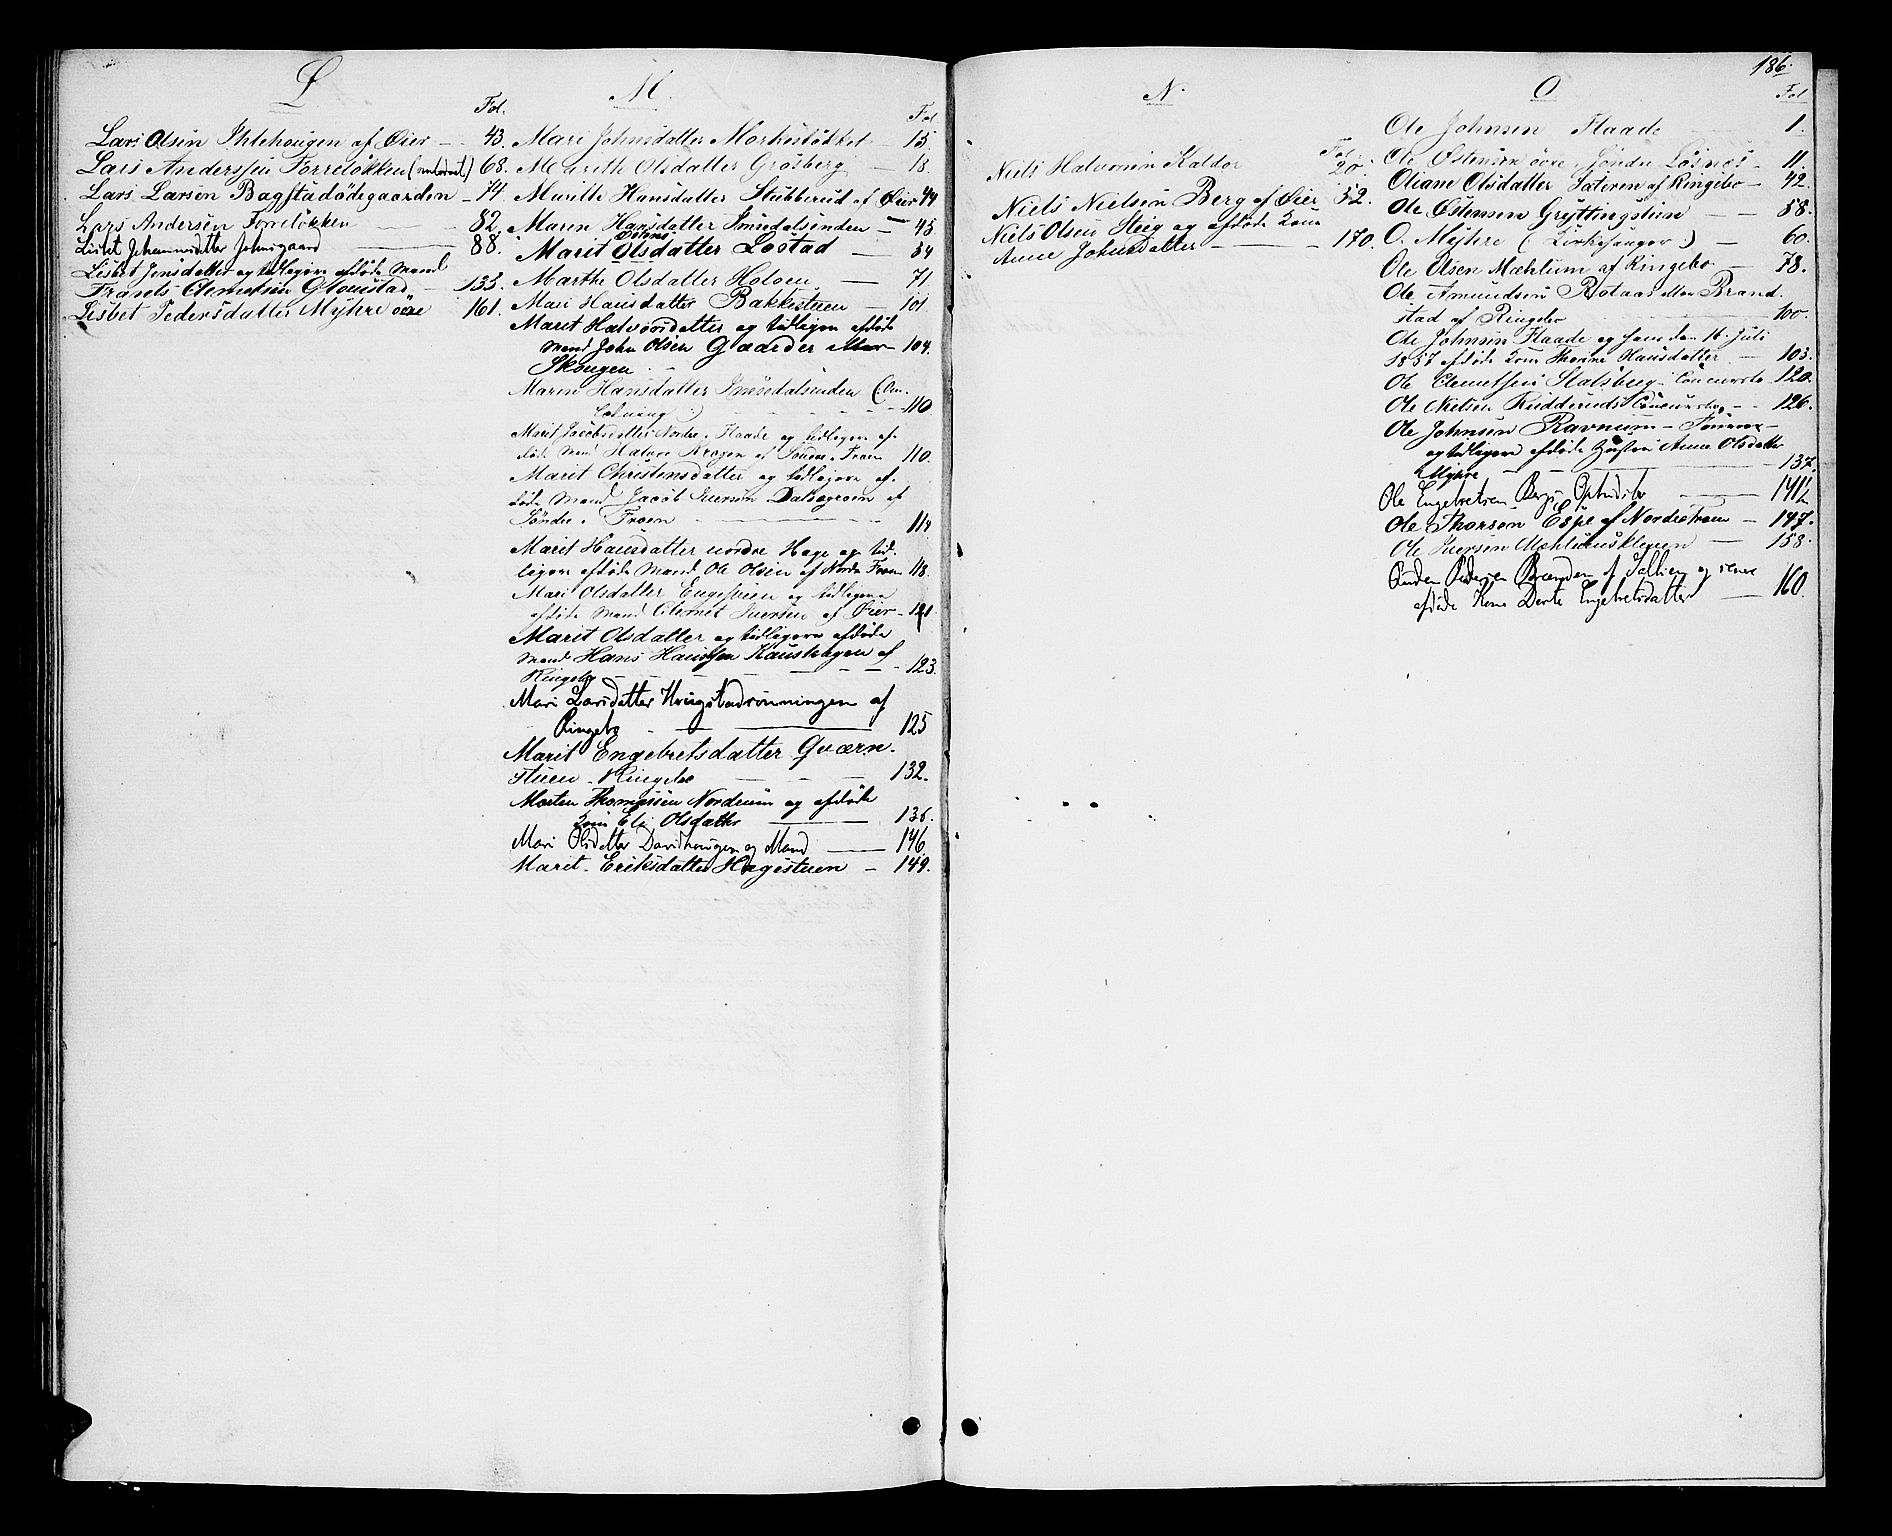 L.
Fol.
Lars Olsen Ihlehougen af Øier - 43.
Lars Anderssen Forreløkken 68.
Lars Larsen Bagstadødegaarden - 74
Lars Andersen Forreløkken 82.
Lisbet Johannesdatter Johnsgaard 88.
Lisbet Jensdatter og tidligere afdøde Mand
Frants Clemetsen Glomstad - 133.
Lisbet Pedersdatter Myhre øvre 161.
M.
Fol
Mari Johnsdatter Morkestøkket 15.
Mareth Olsdatter Grosberg - 18.
Marithe Hansdatter Stubberud af Øier 44
Maren Hansdatter Smedalsenden - 45
Østens
Marit Olsdatter Lostad - 54
Marthe Olsdatter Holoen - 71
Mari Hansdatter Bakkestuen - 101.
Marit Halvorsdatter og tidligere afdøde
Mand John Olsen Gaarder eller 104.
Skougen
Maren Hansdatter Smedalsenden (: An-
110
Marit Jacobsdatter Nordre Flaade og tidligere af-
døde Mand Halvor Kragen af Søndre Froen 110.
Marit Christensdatter og tidligere af-
døde Mand Jacob Iversen Dalsegroen af
Søndre Froen - 114
Marit Hansdatter nordre Hage og tid-
ligere afdøde Mand Ole Olsen af Nordre Froen 118.
Marit Olsdatter Engestuen og tidligere
afdøde Mand Clemet Iversen af Øier - 121
Marit Olsdatter og tidligere afdøde
Mand Hans Hanssen Kaushagen af
Ringebo - 123.
Mari Larsdatter Krugstadrønningen af
Ringebo - 125
Marit Engebretsdatter Qværn-
stuen - Ringebo - 132.
Morten Thomassen Nordrum og afdøde
Kone Eli Olsdatter - 136.
Mari Olsdatter Davidhougen og Mand - 146
Marit Eriksdatter Hagestuen - 149.
N.
Fol
Niels Halvorsen Kaldor 20.
Niels Nielsen Berg af Øier 52.
Niels Olsen Steig og afdøde Kone
Anne Johnsdatter - 170.
186.
O
Fol
Ole Johnsen Flaade 1.
Ole Østensen øvre Søndre Losnes - 11.
Oliane Olsdatter Sæteren af Ringebo - 42.
Ole Østensen Gryttingstuen - 58.
O. Myhre (: Kirkesanger :) - 60.
Ole Olsen Mæhlum af Ringebo - 78.
Ole Amundsen Rolaas eller Brand-
stad af Ringebo 100.
Ole Johnsen Flaade og hans den 16. Juli
1857 afdøde Kone Thorine Hansdatter - 103.
Ole Clemetsen Stalsberg - Concursbo 120.
Ole Nielsen Rudderuds Concursbo - 126.
Ole Johnsen Ravnum -
og tidligere afdøde Hustru Anne Olsdatter
Myhre - 137.
Ole Engebretsen Bergs Opbudsbo - 141½
Ole Thorsen Espe af Nordre Froen - 147.
Ole Iversen Mæhlumskleven - 158.
Pedersen Brænden af og
afdøde Kone Dorte Engebretsdatter - 160.